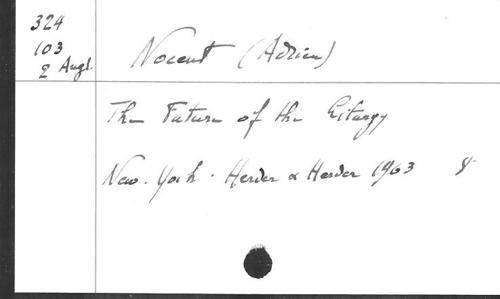 324
103
2 Angl.
Nocent (Adrien)
The Future of the Liturgy
New-York. Herder & Herder 1963 8°